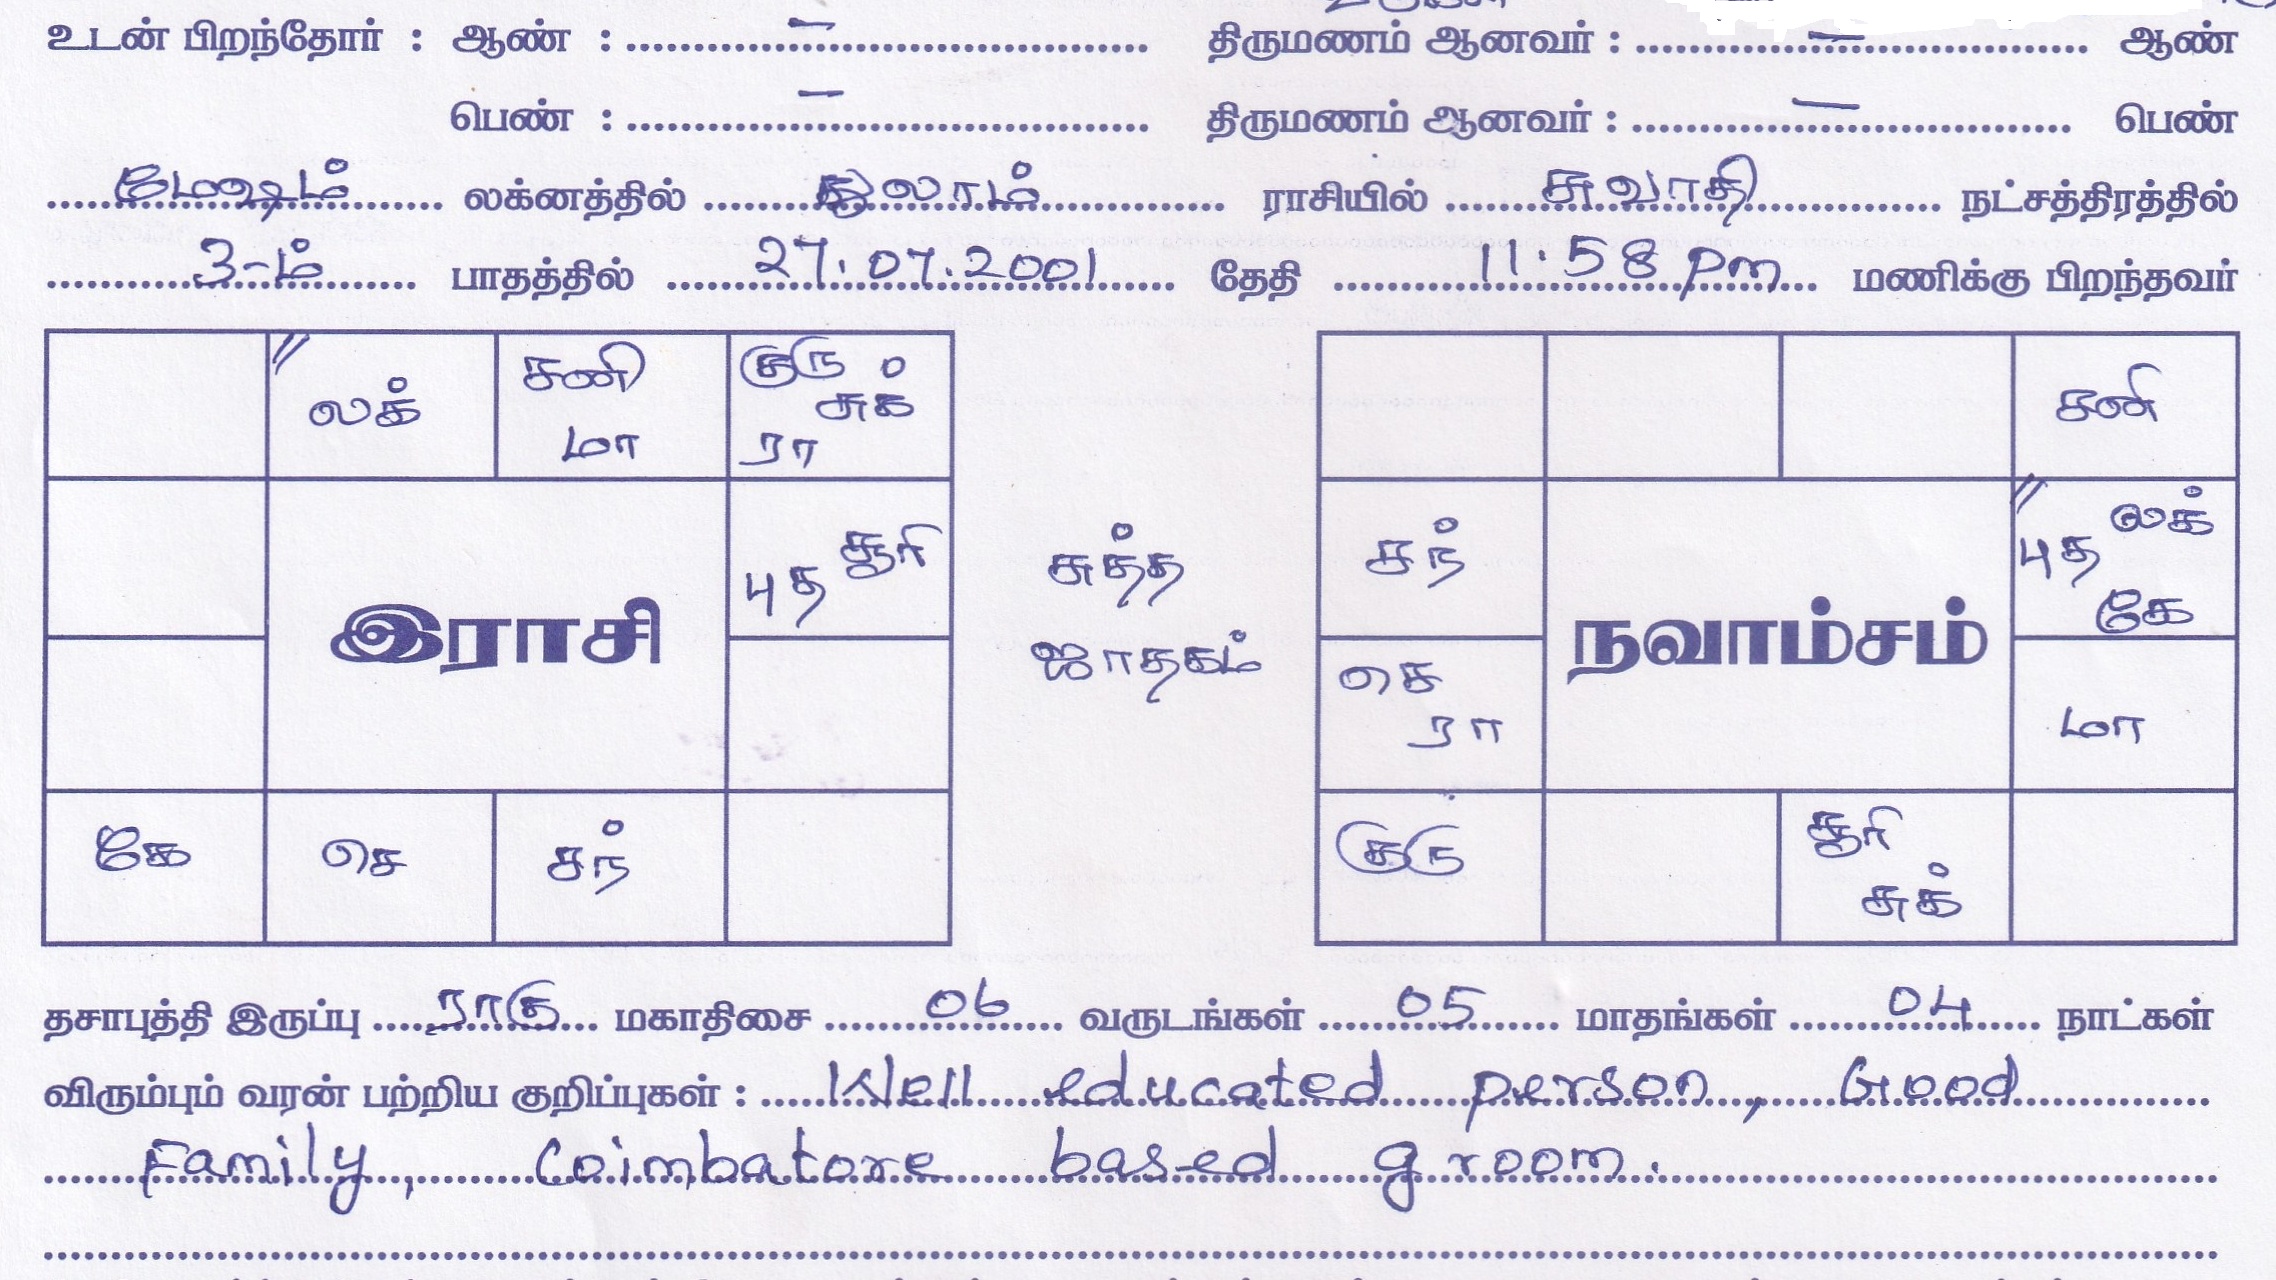 உடன் பிறந்தோர் : ஆண் : ..... – ..... திருமணம் ஆனவர் : ..... – ..... ஆண்
பெண் : ..... – ..... திருமணம் ஆனவர் : ..... – ..... பெண்
..... மேஷம் ..... லக்னத்தில் ..... துலாம் ..... ராசியில் ..... சுவாதி ..... நட்சத்திரத்தில்
..... 3-ம் ..... பாதத்தில் ..... 27.07.2001 ..... தேதி ..... 11.58 pm ..... மணிக்கு பிறந்தவர்
லக்
சனி
மா
குரு
சுக்
ரா
சூரி
புத
இராசி
கே
செ
சந்
சுத்த
ஜாதகம்
சனி
சந்
லக்
புத
கே
நவாம்சம்
செ
ரா
மா
குரு
சூரி
சுக்
தசாபுத்தி இருப்பு ..... ராகு ..... மகாதிசை ..... 06 ..... வருடங்கள் ..... 05 ..... மாதங்கள் ..... 04 ..... நாட்கள்
விரும்பும் வரன் பற்றிய குறிப்புகள் : ..... Well educated person, Good
Family, Coimbatore based groom.